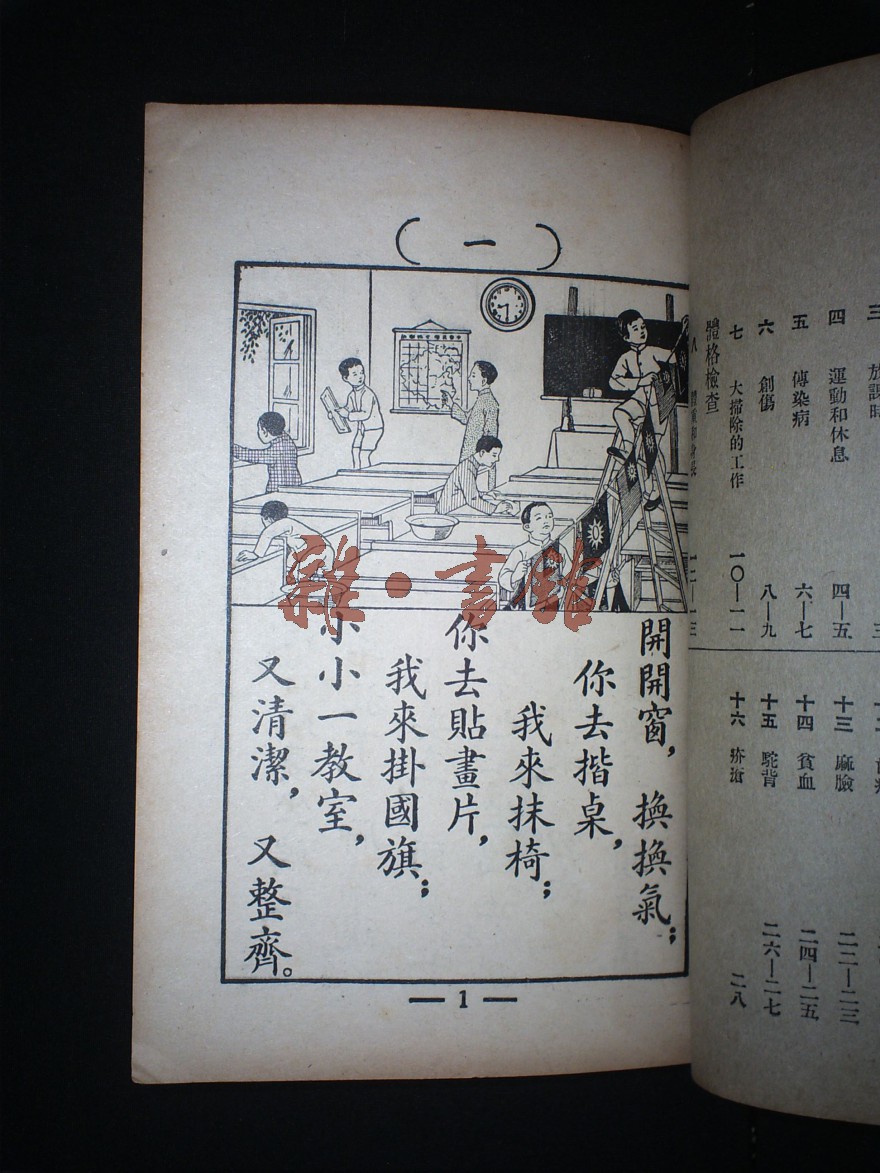 四 運動和休息 四—五
五 傳染病 六—七
六 創傷 八—九
七 大掃除的工作 一〇—一一
體格檢查
八 體重和身長 一二—一三
十三 麻臉 二二—二三
十四 貧血 二四—二五
十五 駝背 二六—二七
十六 疥瘡 二八
（一）
開開窗，換換氣；
你去揩桌，
我來抹椅；
你去貼畫片，
我來掛國旗；
小小一教室，
又清潔，又整齊。
— 1 —
雜·書館